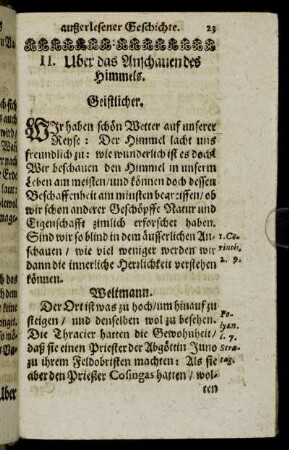 außerlesener Geschichte. 23
II. Uber das Anschauen des
Himmels.
Geistlicher.
WIr haben schön Wetter auf unserer
Reyse: Der Himmel lacht uns
freundlich zu: wie wunderlich ist es doch!
Wir beschauen den Himmel in unserm
Leben am meisten/ und können doch dessen
Beschaffenheit am minsten begreiffen/ ob
wir schon anderer Geschöpffe Natur und
Eigenschafft zimlich erforschet haben.
Sind wir so blind in dem äusserlichen An- 1. Co-
schauen/ wie viel weniger werden wir rinth.
dann die innerliche Herlichkeit verstehen 2. 9.
können.
Weltmann.
Der Ort ist was zu hoch/ um hinauf zu
steigen/ und denselben wol zu besehen. Po-
Die Thracier hatten die Gewohnheit/ lyæn.
daß sie einen Priester der Abgöttin Juno l. 7.
zu ihrem Feldobristen machten: Als sie Stra-
aber den Prießer Cosingas hatten/ wol- tag.
ten